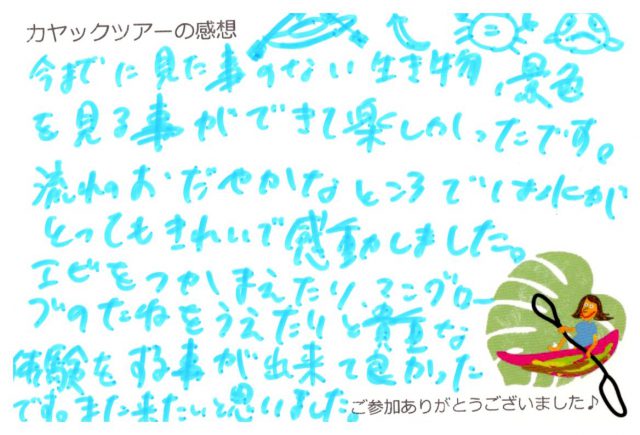 カヤックツアーの感想
今までに見た事のない生き物、景色
を見る事ができて楽しかったです。
流れのおだやかなところでは水が
とってもきれいで感動しました。
エビをつかまえたり、マングロー
ブのたねをうえたりと貴重な
体験をする事が出来て良かった
です。また来たいと思いました。
ご参加ありがとうございました♪